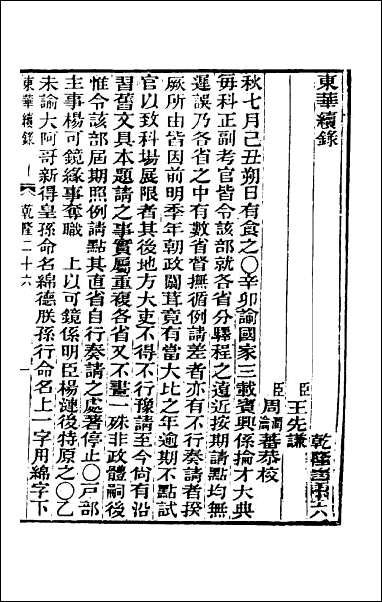 東華續錄　乾隆
臣王先謙
臣周潤瀹蕃恭校
秋七月己丑朔日有食之〇辛卯諭國家三載賓興係掄才大典
每科正副考官皆令該部就各省分驛程之遠近按期請點均無
遲誤乃各省之中有數省督撫循例請差者亦有不行奏請者揆
厥所由皆因前明季年朝政闒茸竟有當大比之年逾期不點試
官以致科場展限者其後地方大吏不得不行豫請至今尚有沿
習舊文具本題請之事實屬重複各省又不畫一殊非政體嗣後
惟令該部屆期照例請點其直省自行奏請之處著停止〇戶部
主事楊可鏡緣事奪職　上以可鏡係明臣楊漣後特原之〇乙
未諭大阿哥新得皇孫命名綿德朕孫行命名上一字用綿字下
東華續錄　乾隆二十六　一